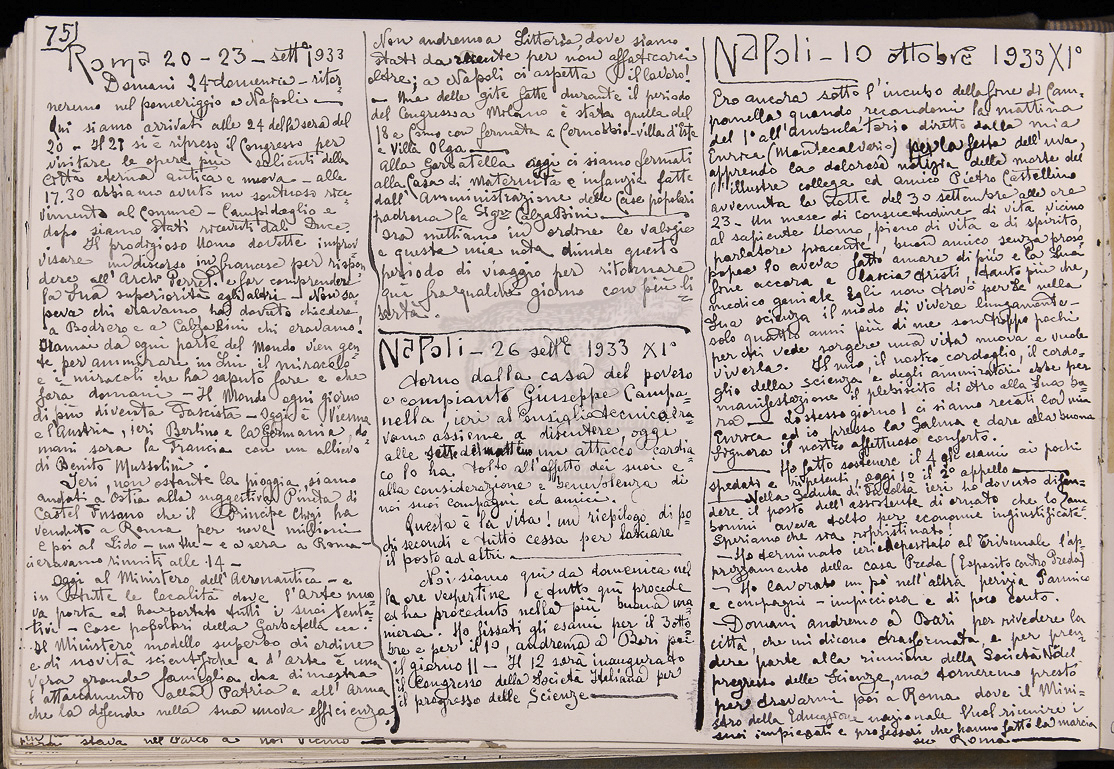 75)
Roma 20-23-sett.e 1933
Domani 24-domenica-ritor=
neremo nel pomeriggio a Napoli —
Qui siamo arrivati alle 24 della sera del
20 - Il 21 si è ripreso il Congresso per
visitare le opere più salienti della
Città eterna antica e nuova - alle
17.30 abbiamo avuto un sontuoso rice
vimento al Comune - Campidoglio e
dopo siamo stati ricevuti dal Duce.
Il prodigioso Uomo dovette improv
visare un discorso in francese per rispon
dere all'Arch. Perret e far comprendere
la Sua superiorità agli altri - Non sa
peva chi eravamo ha dovuto chiedere
a Bodrero e a Calza Bini chi eravamo!
Oramai da ogni parte del Mondo vien gen
te per ammirare in Lui il miracolo
e i miracoli che ha saputo fare e che
farà domani - Il Mondo ogni giorno
di più diventa fascista - Oggi è Vienna
e l'Austria, ieri Berlino e la Germania, do=
mani sarà la Francia con un allievo
di Benito Mussolini.
Ieri, non ostante la pioggia, siamo
andati a Ostia alla suggestiva Pineta di
Castel Fusano che il Principe Chigi ha
venduto a Roma per nove milioni
e poi al Lido - e a sera a Roma -
eravamo riuniti alle 14 -
Oggi al Ministero dell'Aeronautica - e
in tutte le località dove l'Arte nuo
va porta ed ha portato tutti i suoi tenta=
tivi - Case popolari della Garbatella ecc.
Il Ministero modello superbo di ordine
e di novità scientifiche e d'arte è una
vera grande famiglia che dimostra
l'attaccamento alla Patria e all'Arma
che la difende nella sua nuova efficienza.
stava nel Palco a noi vicino —
Non andremo a Littoria, dove siamo
stati da recente per non affaticarci
oltre; a Napoli ci aspetta il lavoro!
- Una delle gite fatte durante il periodo
del Congresso a Milano è stata quella del
18 a Como con fermata a Cernobbio-villa d'Este
e Villa Olga —
Alla Garbatella oggi ci siamo fermati
alla Casa di Maternità e infanzia fatte
dall'Amministrazione delle Case popolari
padrona la Sig.ra Calza Bini —
Ora mettiamo in ordine le valigie
e queste mia nota chiude questo
periodo di viaggio per ritornare
qui fra qualche giorno con più li=
bertà.
Napoli - 26 sett.e 1933 XI°
Torno dalla casa del povero
e compianto Giuseppe Campa=
nella, ieri al Consiglio tecnico era
vamo assieme a discutere, oggi
alle sette del mattino un attacco cardia
co lo ha tolto all'affetto dei suoi e
alla considerazione e benevolenza di
noi suoi compagni ed amici.
Questa è la vita! un riepilogo di po
chi secondi e tutto cessa per lasciare
il posto ad altri. —
Noi siamo qui da domenica nel
la ore vespertine e tutto qui procede
ed ha proceduto nella più buona ma
niera. Ho fissati gli esami per il 3 otto
bre e per il 10, andremo a Bari poi
il giorno 11 - Il 12 sarà inaugurato
il Congresso della Società Italiana per
il progresso delle Scienze —
Napoli - 10 ottobre 1933 XI°
Ero ancora sotto l'incubo della fine di Cam=
panella quando recandomi la mattina
del 1° all'ambulatorio diretto dalla mia
Enrica (Montecalvario) per la festa dell'uva,
apprendo la dolorosa notizia della morte del
l'illustre collega ed amico Pietro Castellino
avvenuta la notte del 30 settembre alle ore
23 - Un mese di consuetudine di vita vicino
al sapiente Uomo, pieno di vita e di spirito,
parlatore piacente, buon amico senza proso
popea lo aveva fatto amare di più e la Sua
fine accora e lascia tristi, tanto più che,
medico geniale Egli non trovò per Sé nella
Sua scienza il modo di vivere lungamente -
solo quattro anni più di me son troppo pochi
per chi vede sorgere una vita nuova e vuole
viverla. Il mio, il nostro cordoglio, il cordo=
glio della scienza e degli ammiratori ebbe per
manifestazione il plebiscito di otro alla Sua ba
ra — Lo stesso giorno 1 ci siamo recati la mia
Enrica ed io presso la Salma e dare alla buona
Signora il nostro affettuoso conforto.
Ho fatto sostenere il 4 gli esami ai pochi
spedati e ripetenti, oggi 10 il 2° appello —
Nella seduta di Facoltà ieri ho dovuto difen=
dere il posto dell'assistente di ornato che lo Zam
bonini aveva tolto per economie ingiustificate.
Speriamo che sia ripristinato!
Ho terminato ieri e depositato al Tribunale l'ap=
prezzamento della casa Preda (Esposito contro Preda)
- Ho lavorato un pò nell'altra perizia Pannico
e compagni - impicciosa e di poco conto.
- Domani andremo a Bari per rivedere la
città, che mi dicono trasformata, e per pren=
dere parte alla riunione della Società del
progresso delle Scienze, ma torneremo presto
per trovarmi poi a Roma dove il Mini=
stro della Educazione nazionale vuol riunire i
suoi impiegati e professori che hanno fatto la marcia
su Roma —